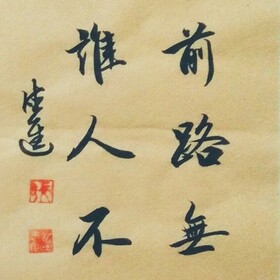 前路無
誰人不